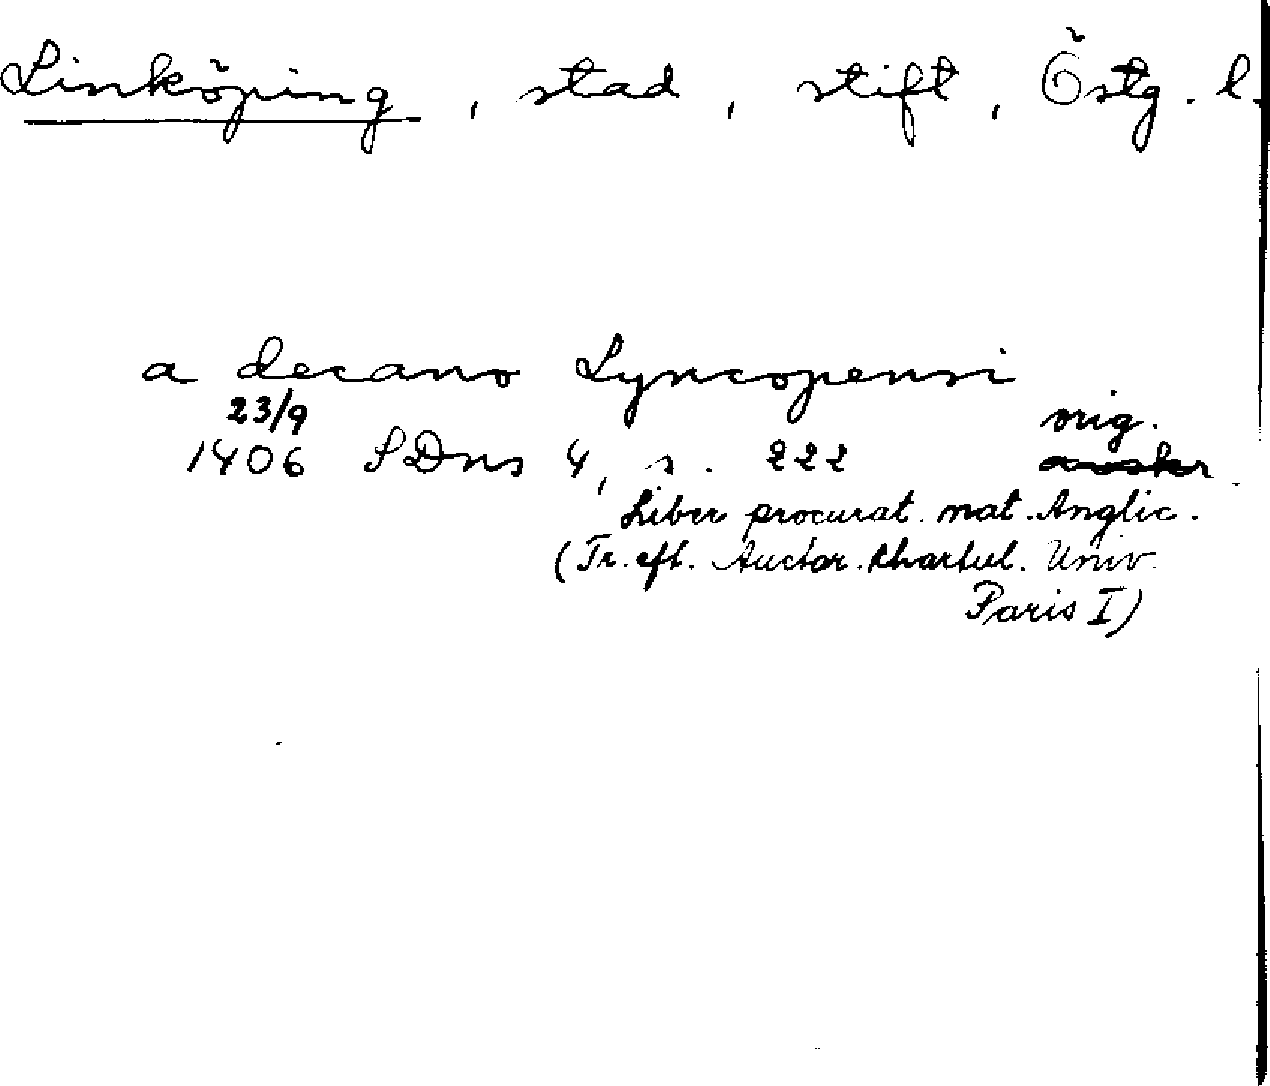 Linköping, stad, stift, Östg. l.
a decano Lyncopensi
23/9 orig.
1406 SDns 4, s. 222 avskr.
Liber procurat. nat. Anglic.
(Tr. eft. Auctar. Chartul. Univ.
Paris I)